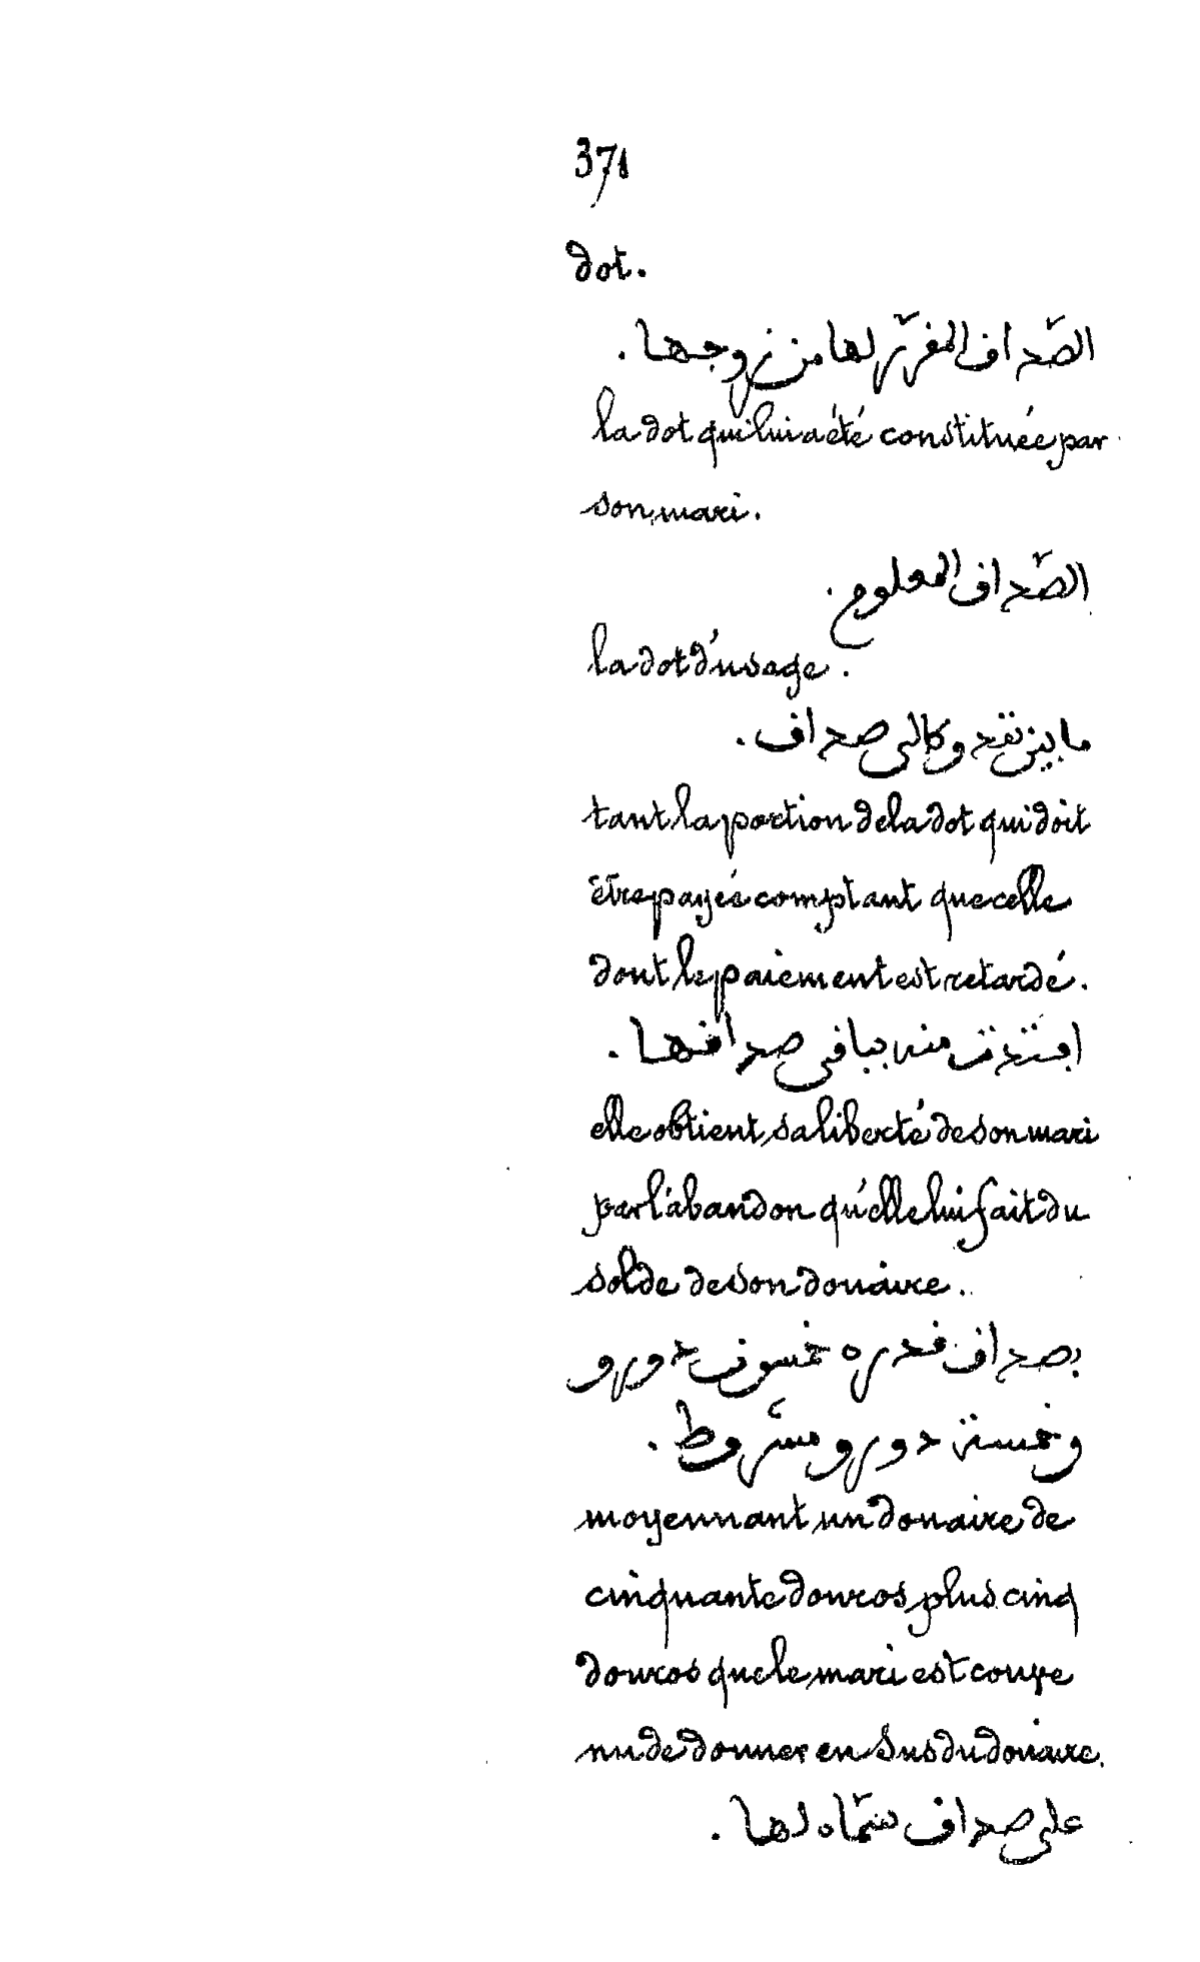 371
dot.
الصّداق المقرّر لها من زوجها.
la dot qui lui a été constituée par
son mari.
الصّداق المعلوم.
la dot d'usage.
ما بين نقد وكالى صداق.
tant la portion de la dot qui doit
être payée comptant que celle
dont le paiement est retardé.
افتدت منه بباقى صداقها.
elle obtient sa liberté de son mari
par l'abandon qu'elle lui fait du
solde de son douaire.
بصداق قدره خمسون دورو
وخمسة دورو مشروط.
moyennant un douaire de
cinquante douros, plus cinq
douros que le mari est conve
nu de donner en sus du douaire.
على صداق سمّاه لها.